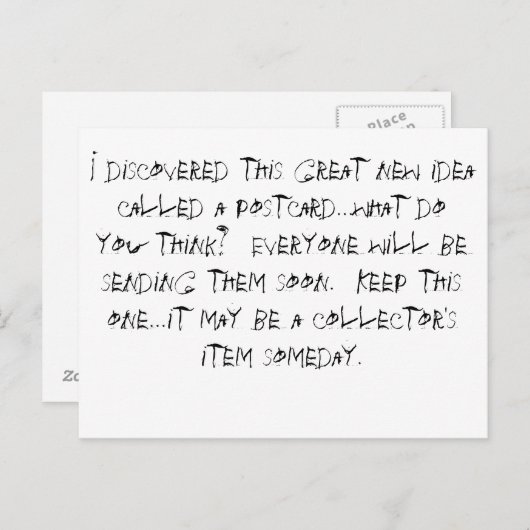 Place
I DISCOVERED THIS GREAT NEW IDEA
CALLED A POSTCARD...WHAT DO
YOU THINK?  EVERYONE WILL BE
SENDING THEM SOON.  KEEP THIS
ONE...IT MAY BE A COLLECTOR'S
ITEM SOMEDAY.